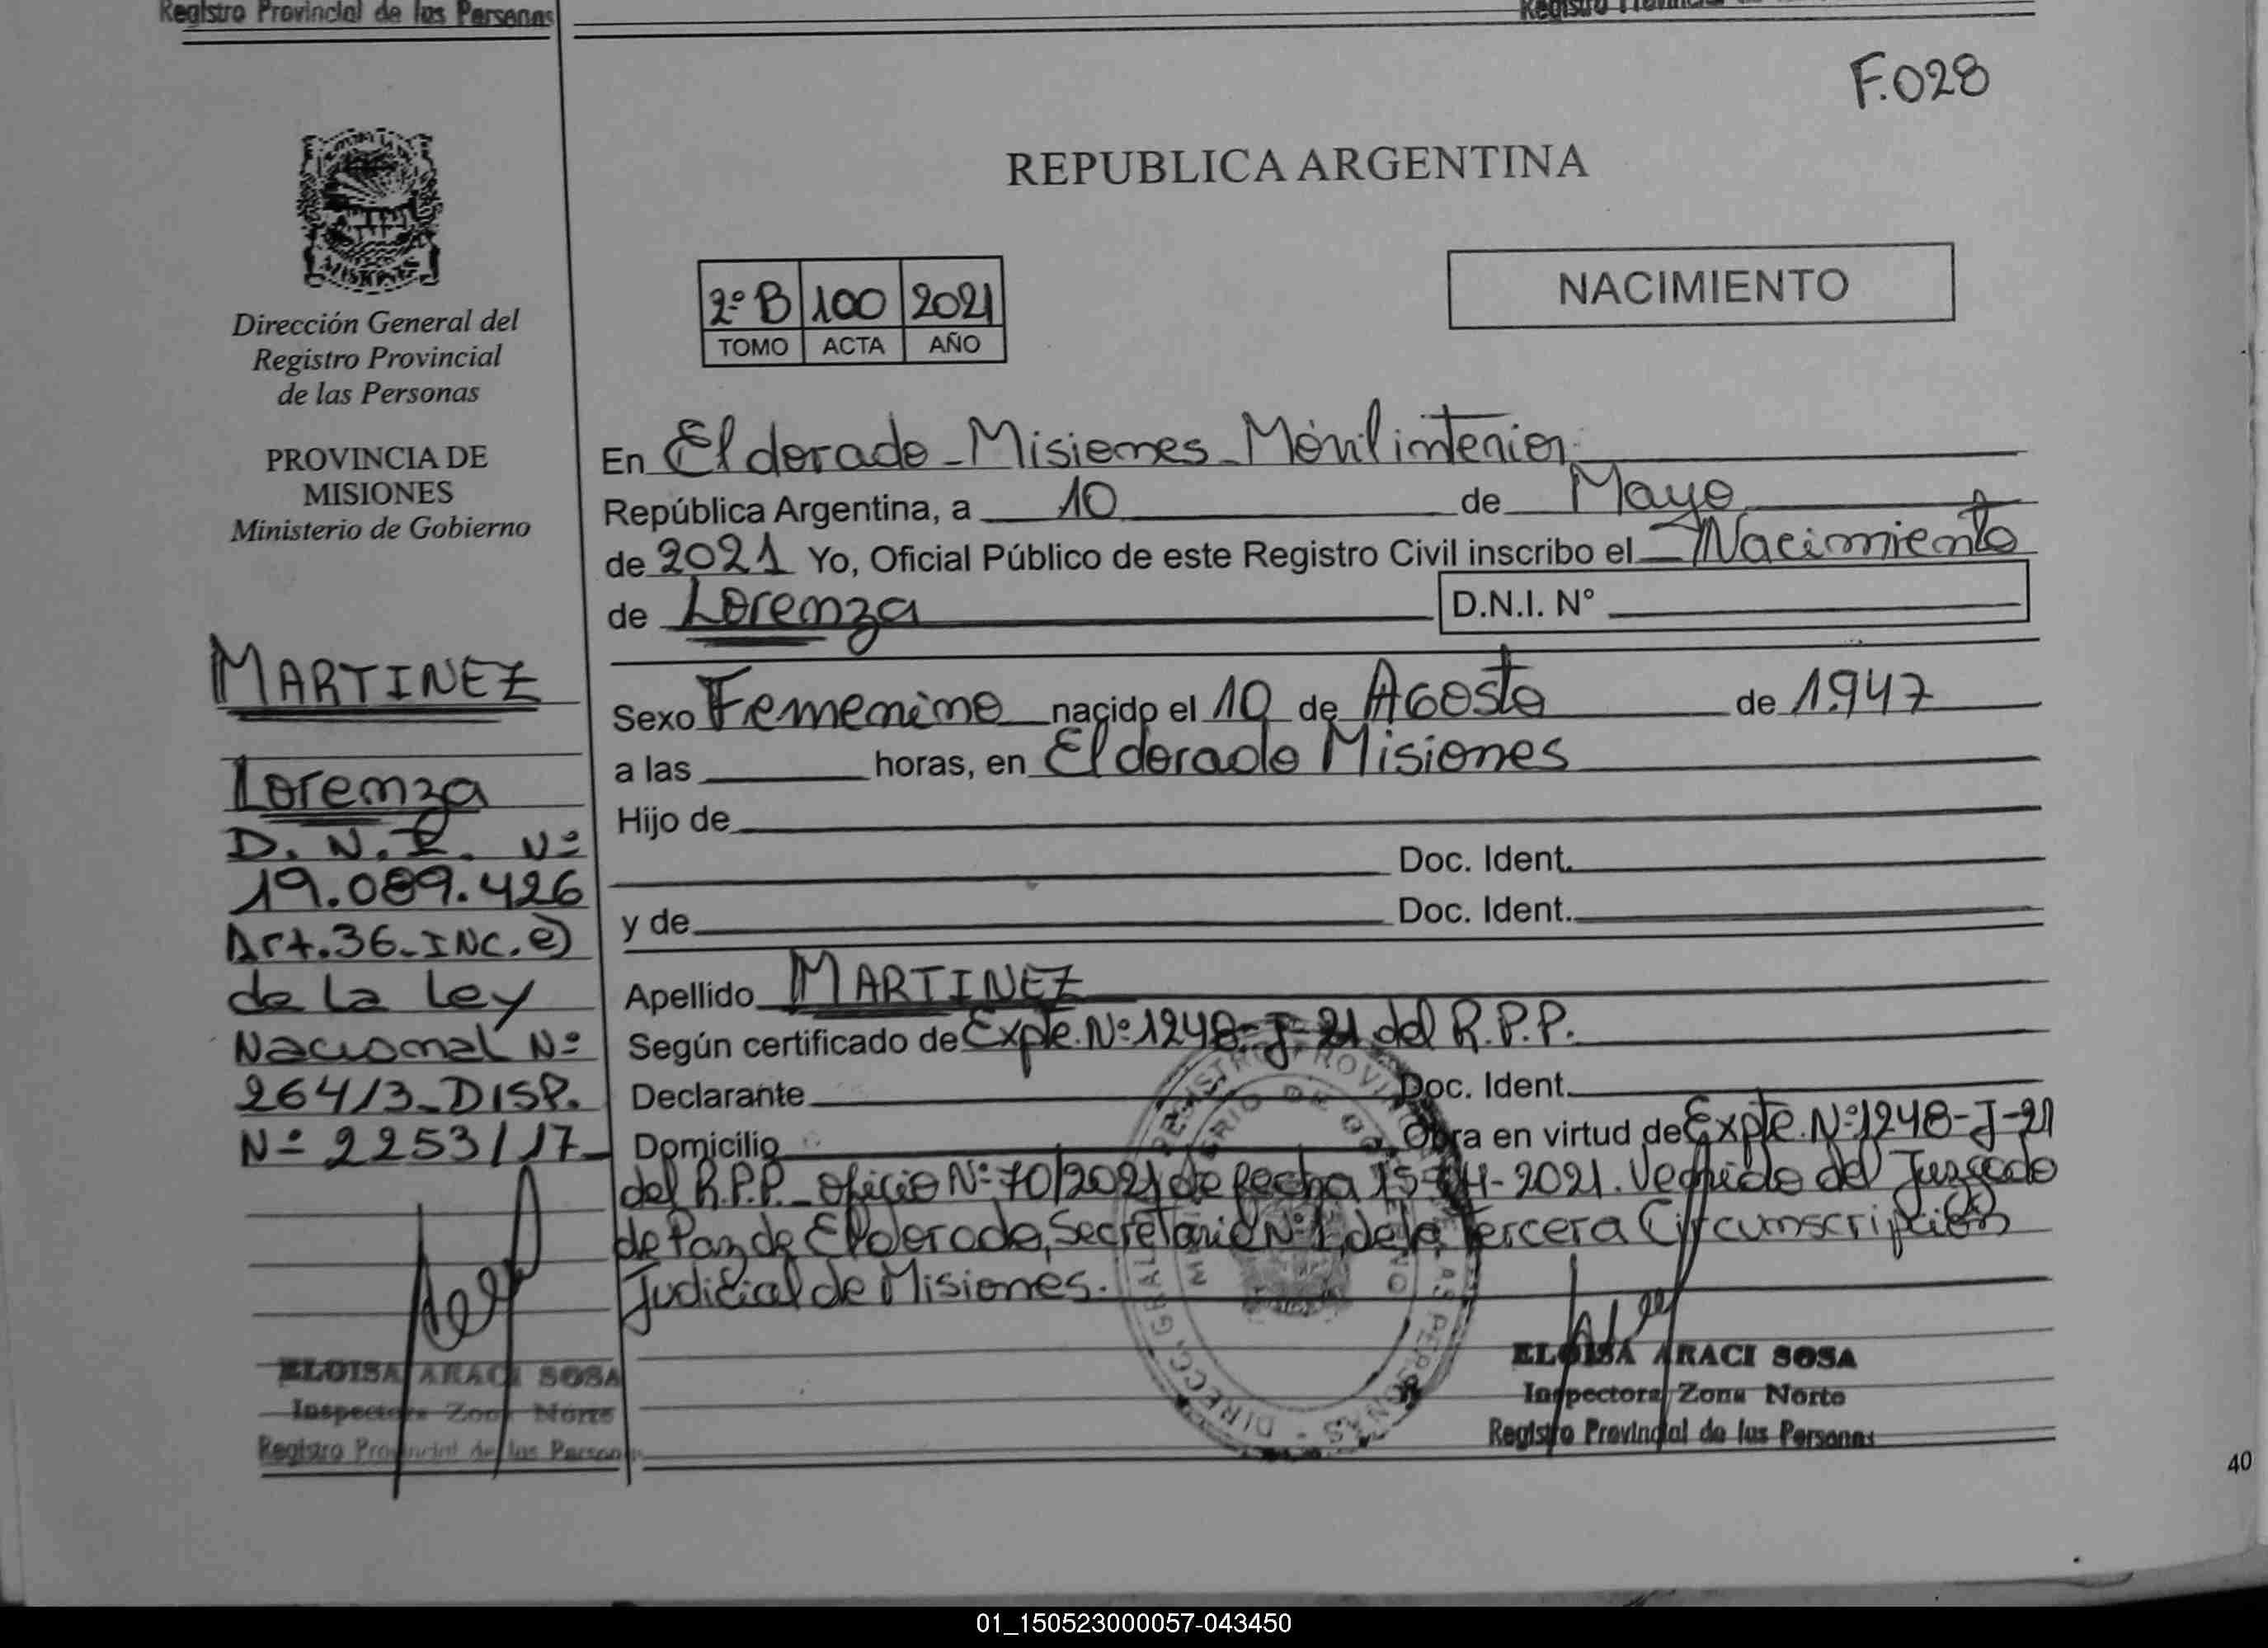 Registro Provincial de las Personas
F.028
REPUBLICA ARGENTINA
MISIONES
Dirección General del
Registro Provincial
de las Personas
PROVINCIA DE
MISIONES
Ministerio de Gobierno
MARTINEZ
Lorenza
D.N.I. Nº
19.089.426
Art.36-INC.e)
de la Ley
Nacional Nº
26413-DISP.
Nº 2253/17-
ELOISA ARACI SOSA
Inspectora Zona Norte
Registro Provincial de las Personas
2º B 100 2021
TOMO ACTA AÑO
NACIMIENTO
En Eldorado-Misiones-Móvil interior
República Argentina, a 10 de Mayo
de 2021 Yo, Oficial Público de este Registro Civil inscribo el Nacimiento
de Lorenza D.N.I. N°
Sexo Femenino nacido el 10 de Agosto de 1.947
a las horas, en Eldorado Misiones
Hijo de
Doc. Ident.
y de Doc. Ident.
Apellido MARTINEZ
Según certificado de Expte. Nº 1248-J-21 del R.P.P.
Declarante Doc. Ident.
Domicilio Obra en virtud de Expte. Nº 1248-J-21
del R.P.P. Oficio Nº 70/2021 de fecha 15-04-2021. Venido del Juzgado
de Paz de Eldorado, Secretaria Nº 1, de la Tercera Circunscripción
Judicial de Misiones.
ELOISA ARACI SOSA
Inspectora Zona Norte
Registro Provincial de las Personas
40
01_150523000057-043450